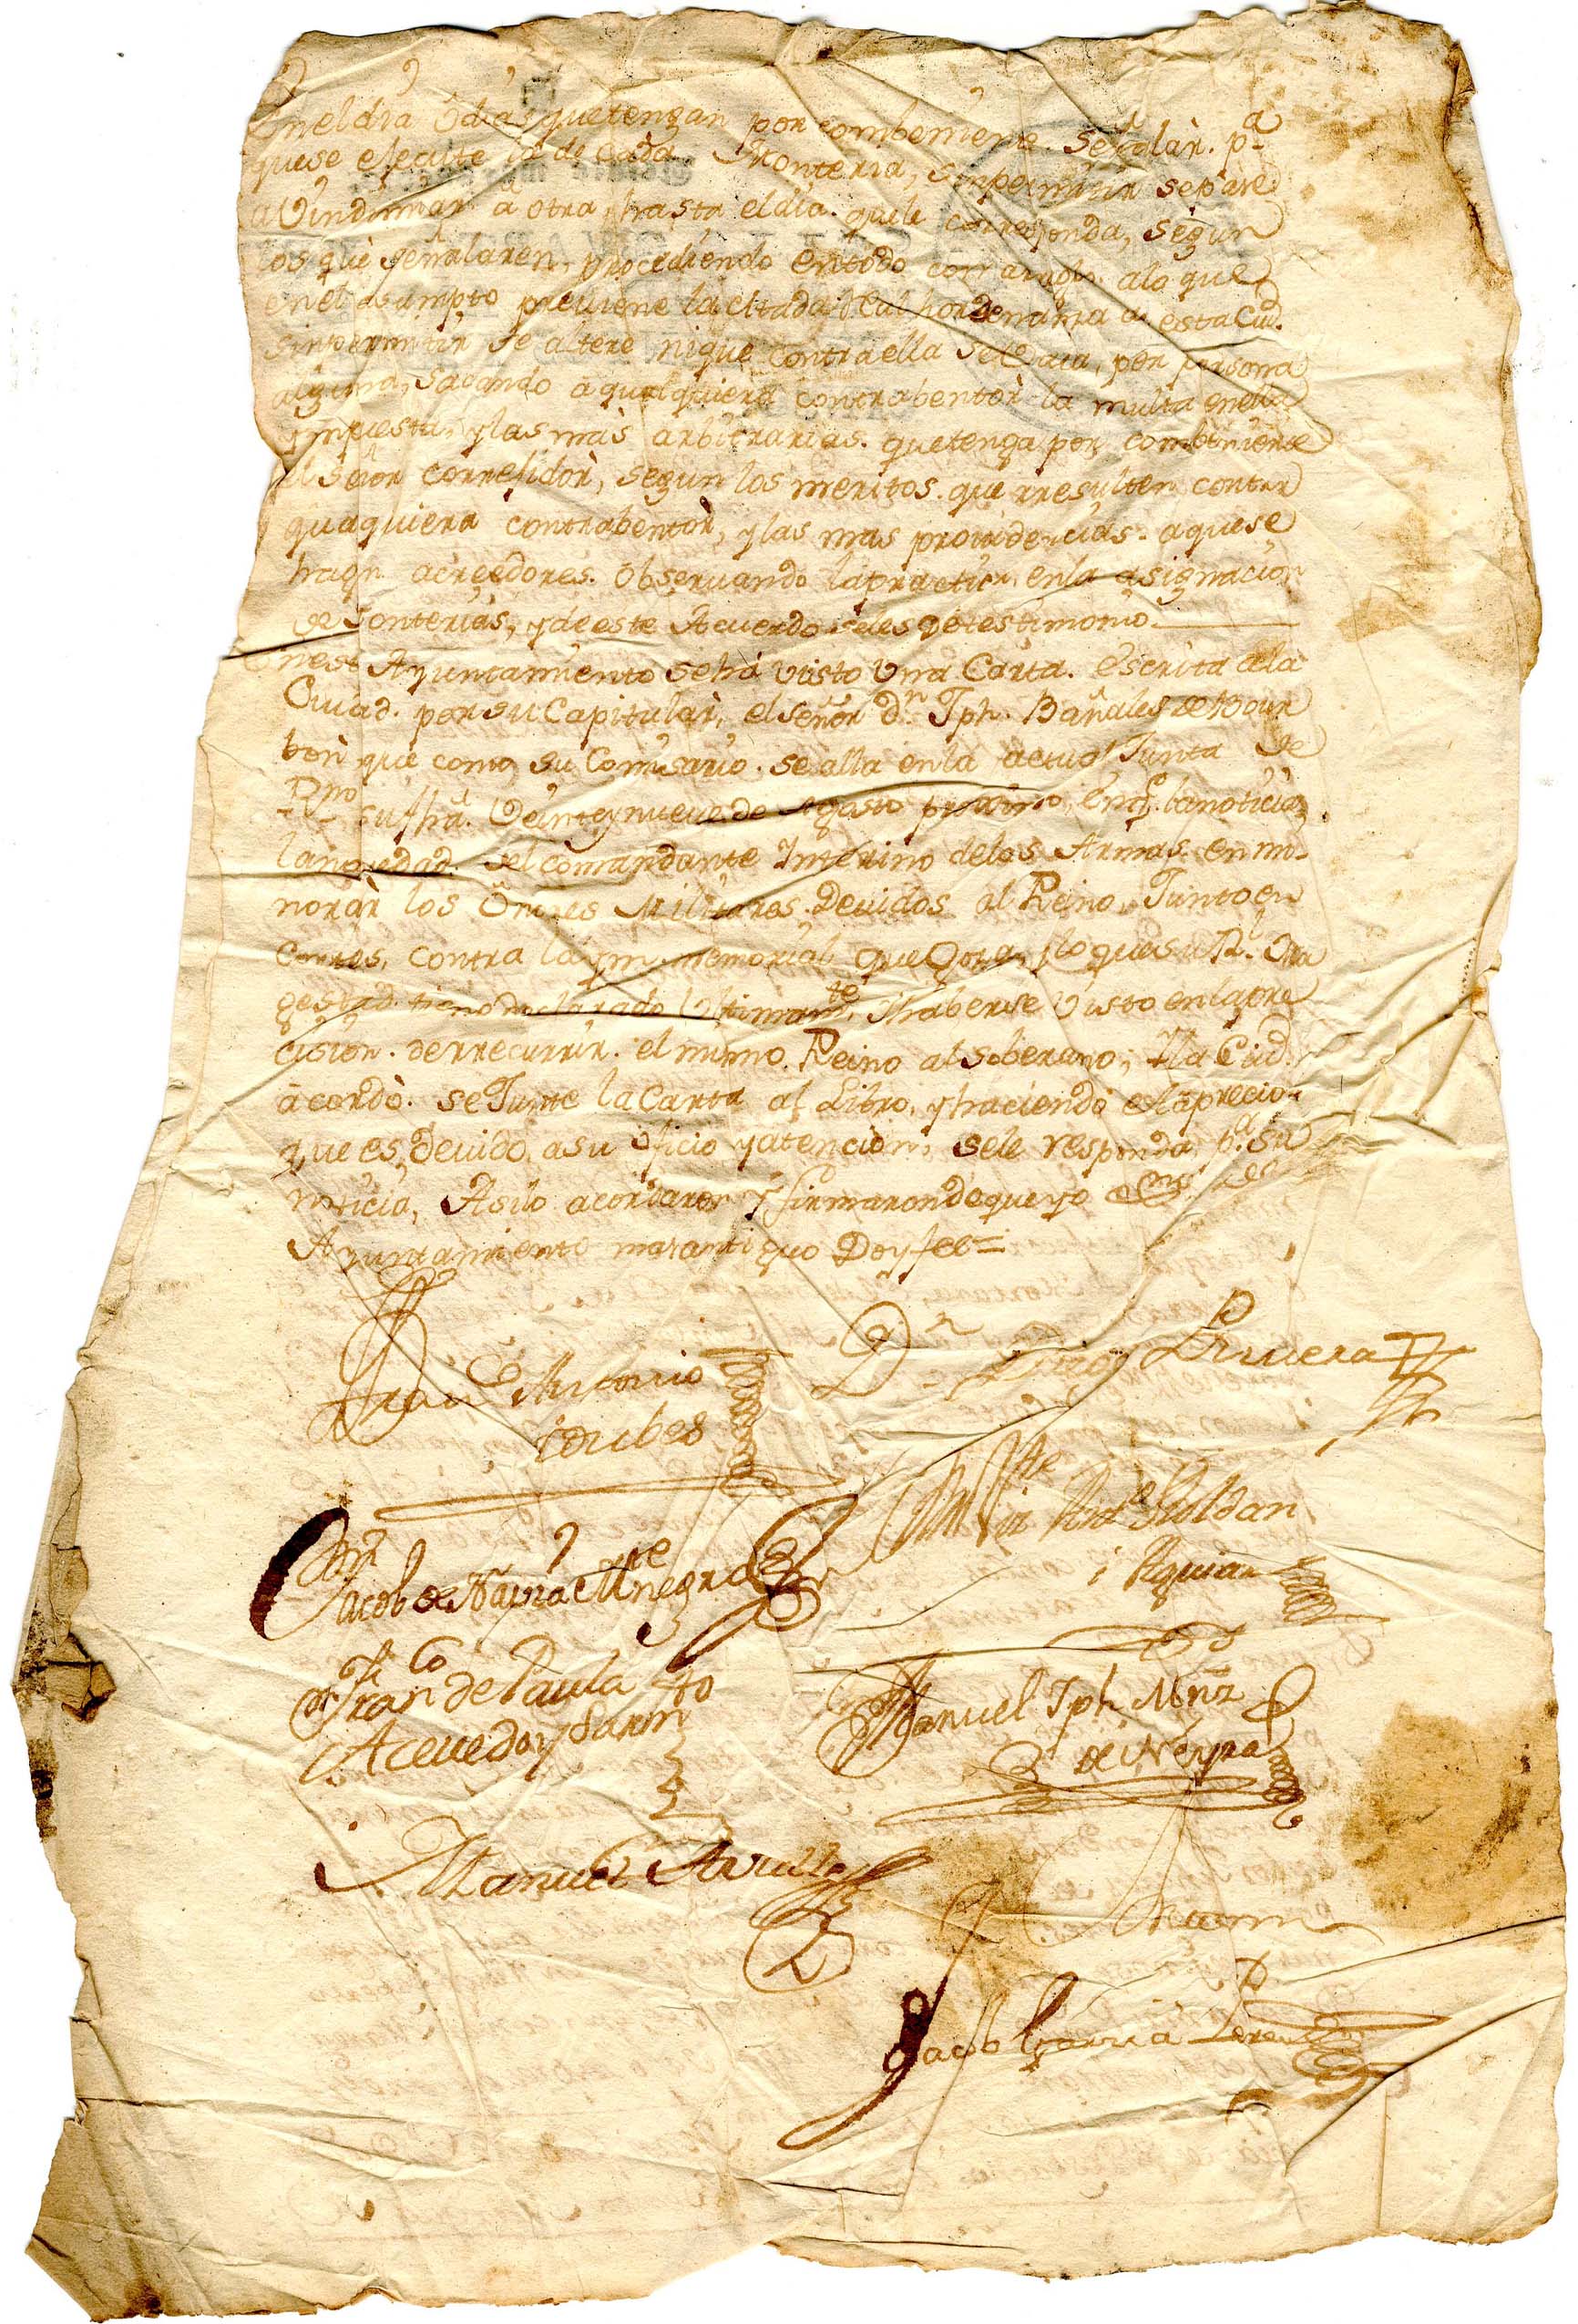 En el dia ô dias que tengan por combeniente señalar. pª
que se ejecute la de cada Montería, sin permitir se pase
a Vindimiar a otra, hasta el dia que le corresponda, segun
los que señalaren, procediendo en todo con arreglo a lo que
en el asumpto previene la citada Real hordenanza de esta Ciud.
sin permitir se altere ni que contra ella se, por persona
alguna, sacando a qualquiera contrabentor la multa en ella
ympuesta, y las mas arbitrarias que tenga por combeniente
el Señor Correjidor, segun los meritos que rresulten contra
quaquiera contrabentor, y las mas providencias a que se
hagn acreedores. Observando la practica en la asignacion
de Monterias, y de este Acuerdo se les dé testimonio.
En este Ayuntamiento se há visto Una Carta escrita a la
Ciuad. por su Capitular, el señor dn. Jph. Bañales de Bour
bon que como su Comisario se alla en la actual Junta de
Rno su fha. Veinte y nueve de Agosto proximo, en q. da noticia
la novedad del comandante Interino de las Armas en mi-
norar los Onores Militares Devidos al Reino, Junto en
Cortes, contra la ymmemorial que Goza, y lo que su Rl. Ma
gestad tiene declarado Ultimamte, y haberse Visto en la pre
cision de rrecurrir el mismo Reino al Soberano; Y la Ciud.
acordò se Junte la Carta al Libro, y haciendo el aprecio
que es Devido a su oficio y atencion, se le responda pª. su
noticia, Asi lo acordaron y firmaron de que yo esno. de
Ayuntamiento mas antiguo Doy fee=
Franco Antonio
Dn Rivera
Vte Anto Roldan
i Aguiar
Dn
Jacob de Nayra Mtenegro
Franco de Paula
Acevedo y Sarmto
Manuel Jph Mñz
de Neyra
Manuel
Jacob Garcia Perez